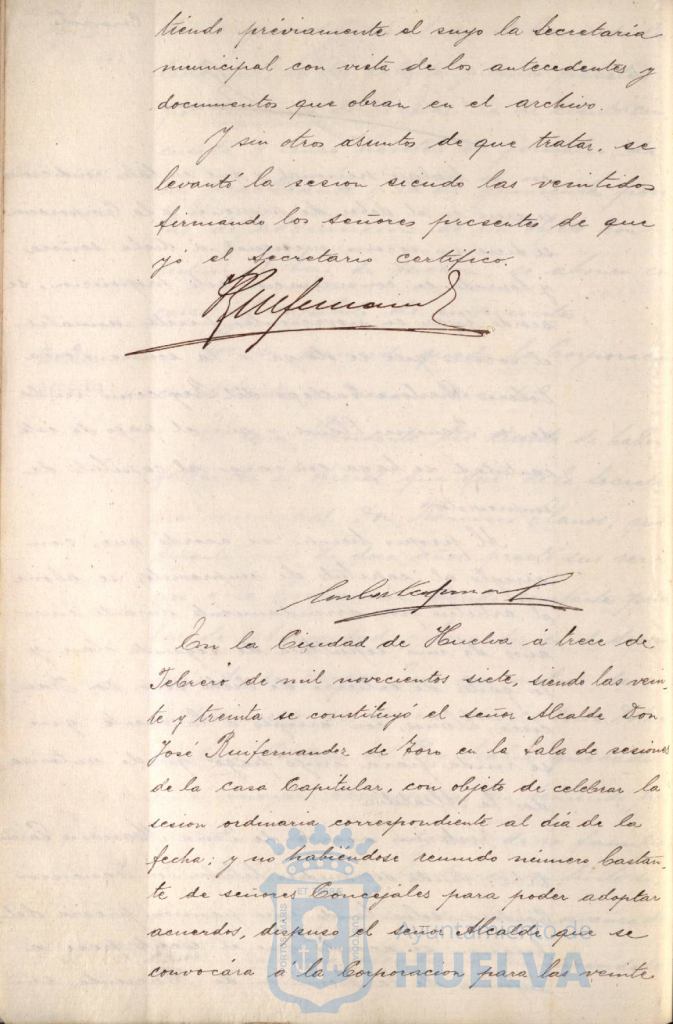 tiendo préviamente el suyo la Secretaria
municipal con vista de los antecedentes y
documentos que obran en el archivo.
Y sin otros asuntos de que tratar, se
levantó la sesion siendo las veintidos
firmando los señores presentes de que
yó el Secretario certifico.
En la Ciudad de Huelva á trece de
Febrero de mil novecientos siete, siendo las vein-
te y treinta se constituyó el señor Alcalde Don
José Ruifernandez de Toro en la Sala de sesiones
de la casa Capitular, con objeto de celebrar la
sesion ordinaria correspondiente al dia de la
fecha; y no habiéndose reunido número bastan-
te de señores Concejales para poder adoptar
acuerdos, dispuso el señor Alcalde que se
convocára á la Corporacion para las veinte
Ayuntamiento de
HUELVA